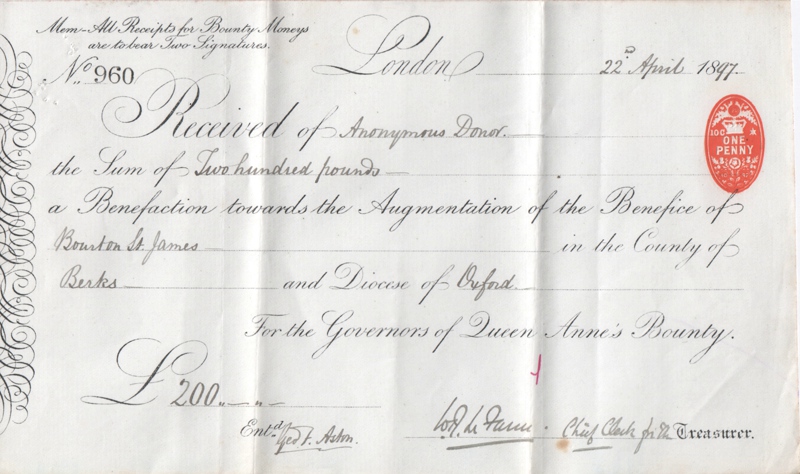 Mem- All Receipts for Bounty Moneys
are to bear Two Signatures.
No. 960
London 22nd April 1897.
100
ONE
PENNY
Received of Anonymous Donor.
the Sum of Two hundred pounds
a Benefaction towards the Augmentation of the Benefice of
Bourton St. James in the County of
Berks and Diocese of Oxford
For the Governors of Queen Anne's Bounty.
£ 200
Entd. Geo F. Aston.
Chief Clerk for the Treasurer.